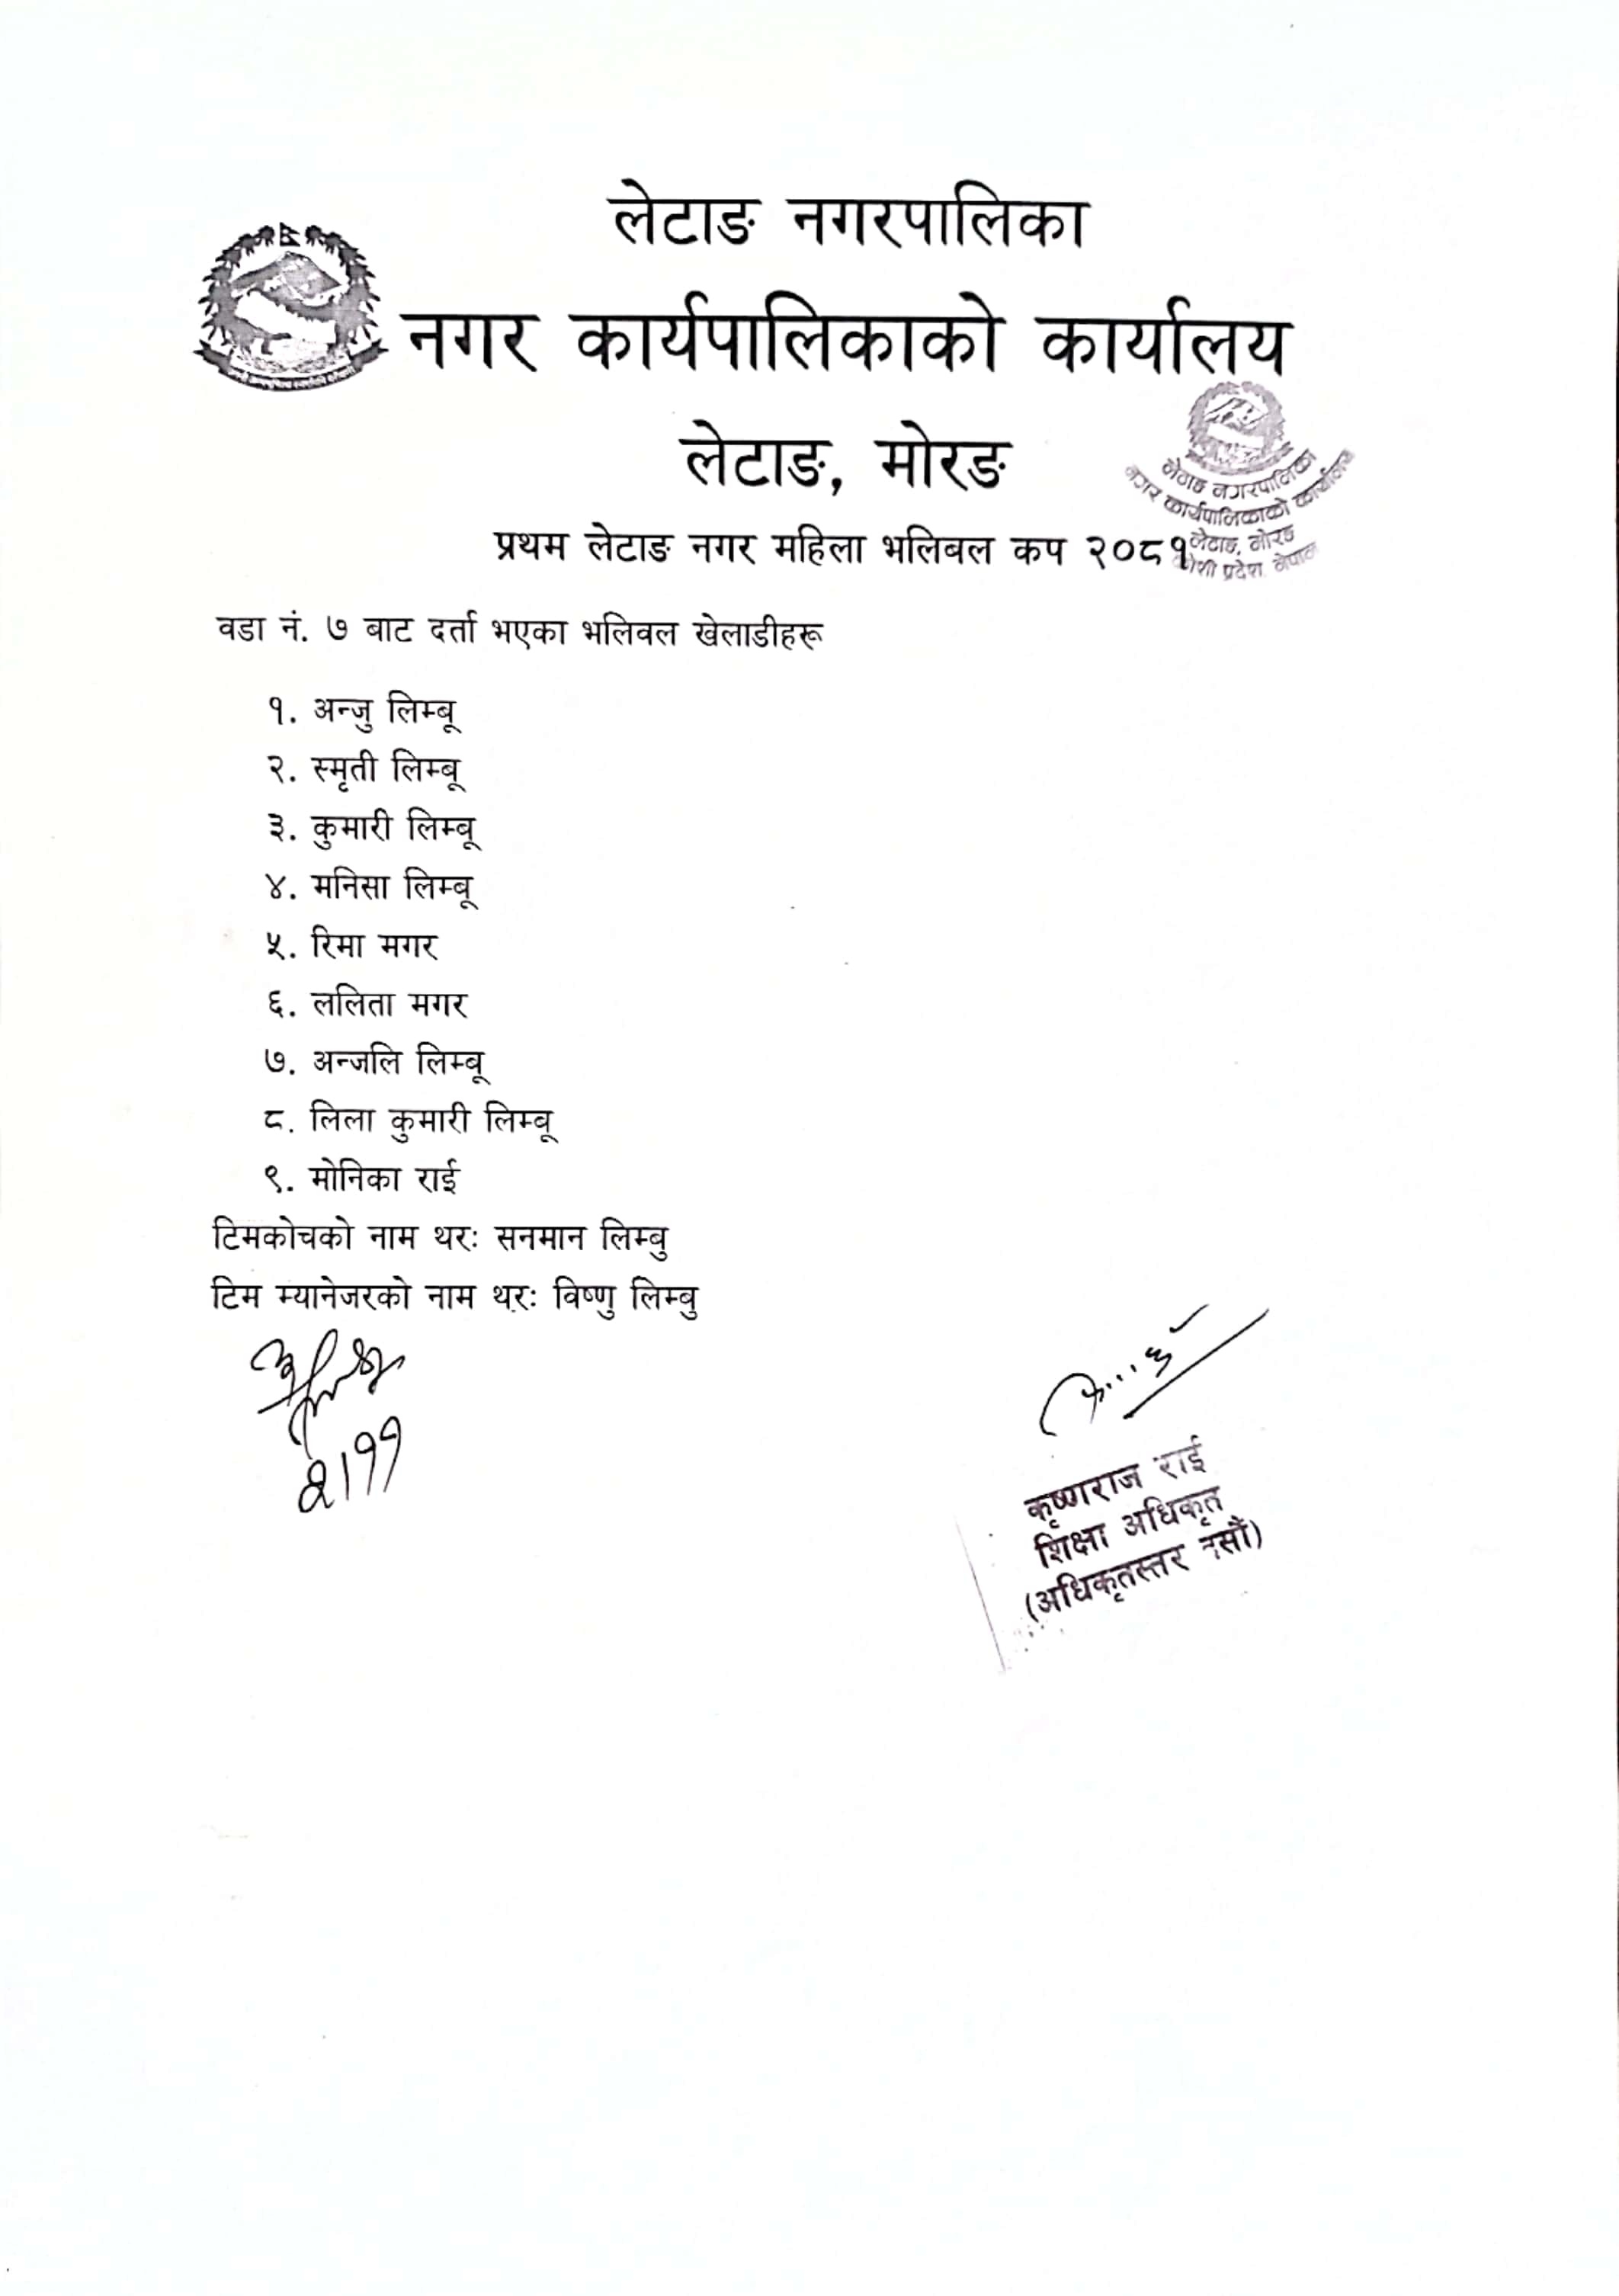 लेटाङ नगरपालिका
नगर कार्यपालिकाको कार्यालय
लेटाङ, मोरङ
लेटाङ नगरपालिका
नगर कार्यपालिकाको कार्यालय
लेटाङ, मोरङ
प्रदेश, नेपाल
प्रथम लेटाङ नगर महिला भलिबल कप २०८१
वडा नं. ७ बाट दर्ता भएका भलिवल खेलाडीहरू
१. अन्जु लिम्बू
२. स्मृती लिम्बू
३. कुमारी लिम्बू
४. मनिसा लिम्बू
५. रिमा मगर
६. ललिता मगर
७. अन्जलि लिम्बू
८. लिला कुमारी लिम्बू
९. मोनिका राई
टिमकोचको नाम थरः सनमान लिम्बु
टिम म्यानेजरको नाम थरः विष्णु लिम्बु
२।११
कृष्णराज राई
शिक्षा अधिकृत
(अधिकृतस्तर दसौं)